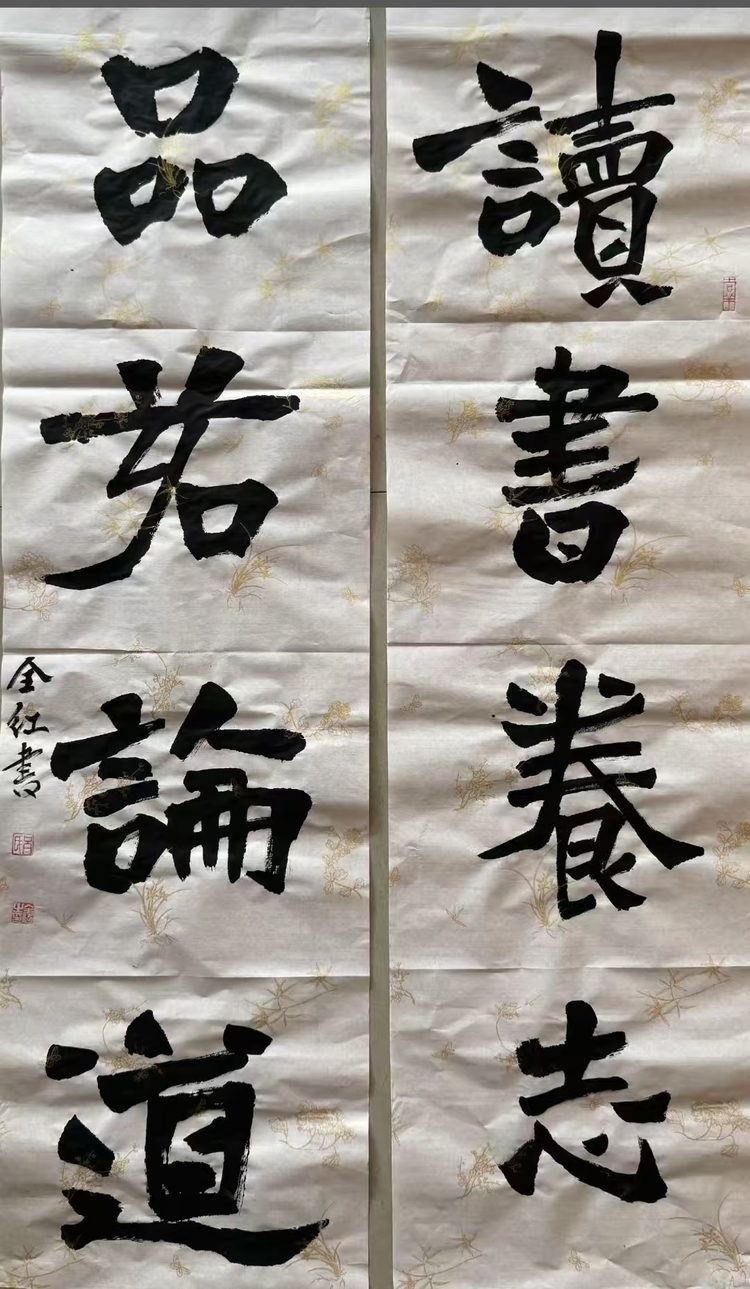 讀書養志
品茗論道
全红書